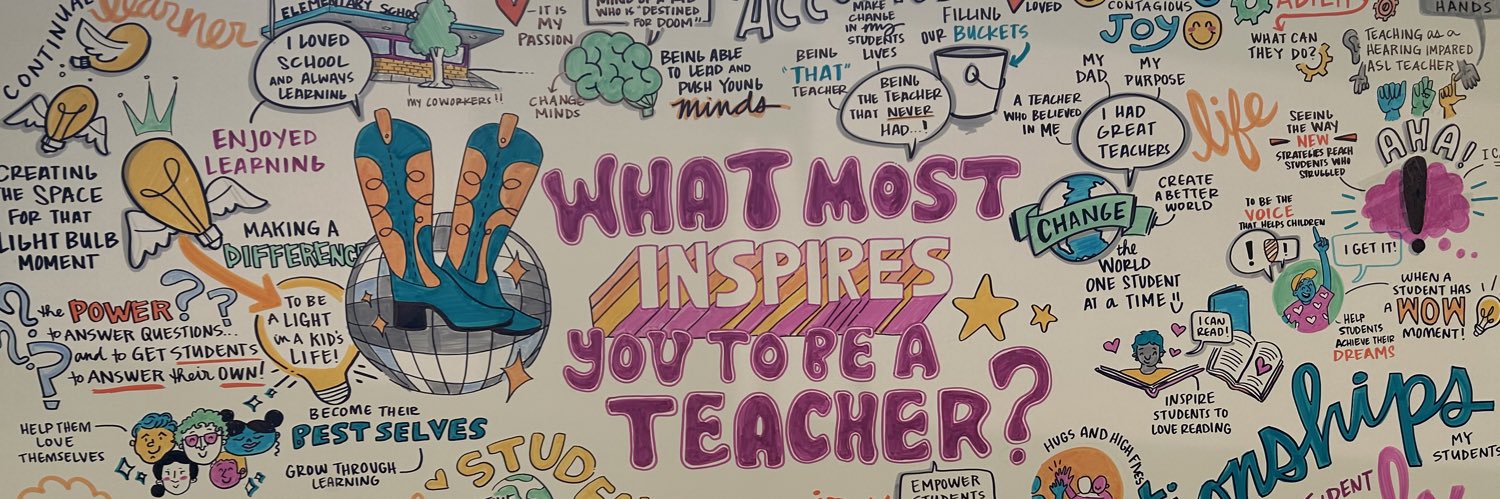 CONTINUAL
learner
ELEMENTARY SCHOOL
I LOVED
SCHOOL
AND ALWAYS
LEARNING
MY COWORKERS!!
IT IS
MY
PASSION
WHO IS "DESTINED
FOR DOOM"
CHANGE
MINDS
BEING ABLE
TO LEAD AND
PUSH YOUNG
minds
MAKE
CHANGE
IN my
STUDENTS
LIVES
BEING
"THAT"
TEACHER
BEING
THE TEACHER
THAT NEVER
HAD...!
FILLING
OUR BUCKETS
LOVED
A TEACHER
WHO BELIEVED
IN ME
MY
DAD
MY
PURPOSE
I HAD
GREAT
TEACHERS
CONTAGIOUS
JOY
life
WHAT CAN
THEY DO?
HANDS
TEACHING as a
HEARING IMPARED
ASL TEACHER
SEEING
THE WAY
NEW
STRATEGIES REACH
STUDENTS WHO
STRUGGLED
AHA!
CREATING
THE SPACE
FOR THAT
LIGHTBULB
MOMENT
ENJOYED
LEARNING
MAKING A
DIFFERENCE
the POWER
to ANSWER QUESTIONS...
and to GET STUDENTS
to ANSWER their OWN!
TO BE
A LIGHT
in A KID'S
LIFE!
WHAT MOST
INSPIRES
YOU TO BE A
TEACHER?
CHANGE
the
WORLD
ONE STUDENT
AT a TIME
CREATE
A BETTER
WORLD
TO BE THE
VOICE
THAT HELPS CHILDREN
I GET IT!
HELP
STUDENTS
ACHIEVE THEIR
DREAMS
WHEN A
STUDENT HAS
A WOW
MOMENT!
I CAN
READ!
INSPIRE
STUDENTS TO
LOVE READING
HELP THEM
LOVE
THEMSELVES
BECOME THEIR
BEST SELVES
GROW THROUGH
LEARNING
EMPOWER
STUDENTS
HUGS AND HIGH FIVES
MY
STUDENTS